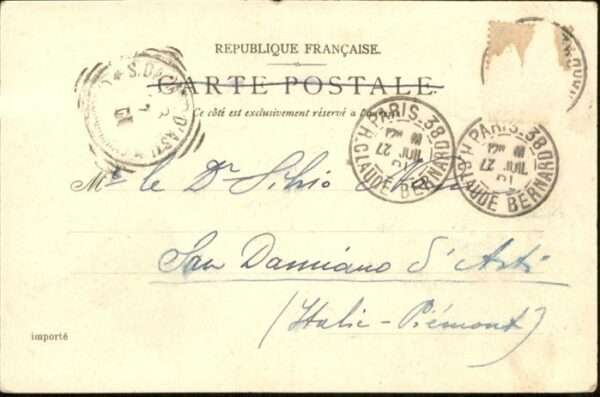 REPUBLIQUE FRANÇAISE.
CARTE POSTALE.
Ce côté est exclusivement réservé à
S. DA D'ASTI
PARIS-38
R. CLAUDE BERNARD
27
JUIL
01
PARIS-38
R. CLAUDE BERNARD
27
JUIL
01
le Dr Silvio
San Damiano d'Asti
(Italie-Piémont)
importé